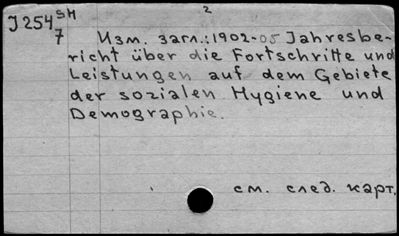 2
J 254 SH
7
Изм. загл.: 1902-05 Jahresbe-
richt über die Fortschritte und
Leistungen auf dem Gebiete
der sozialen Hygiene und
Demographie.
см. след. карт.